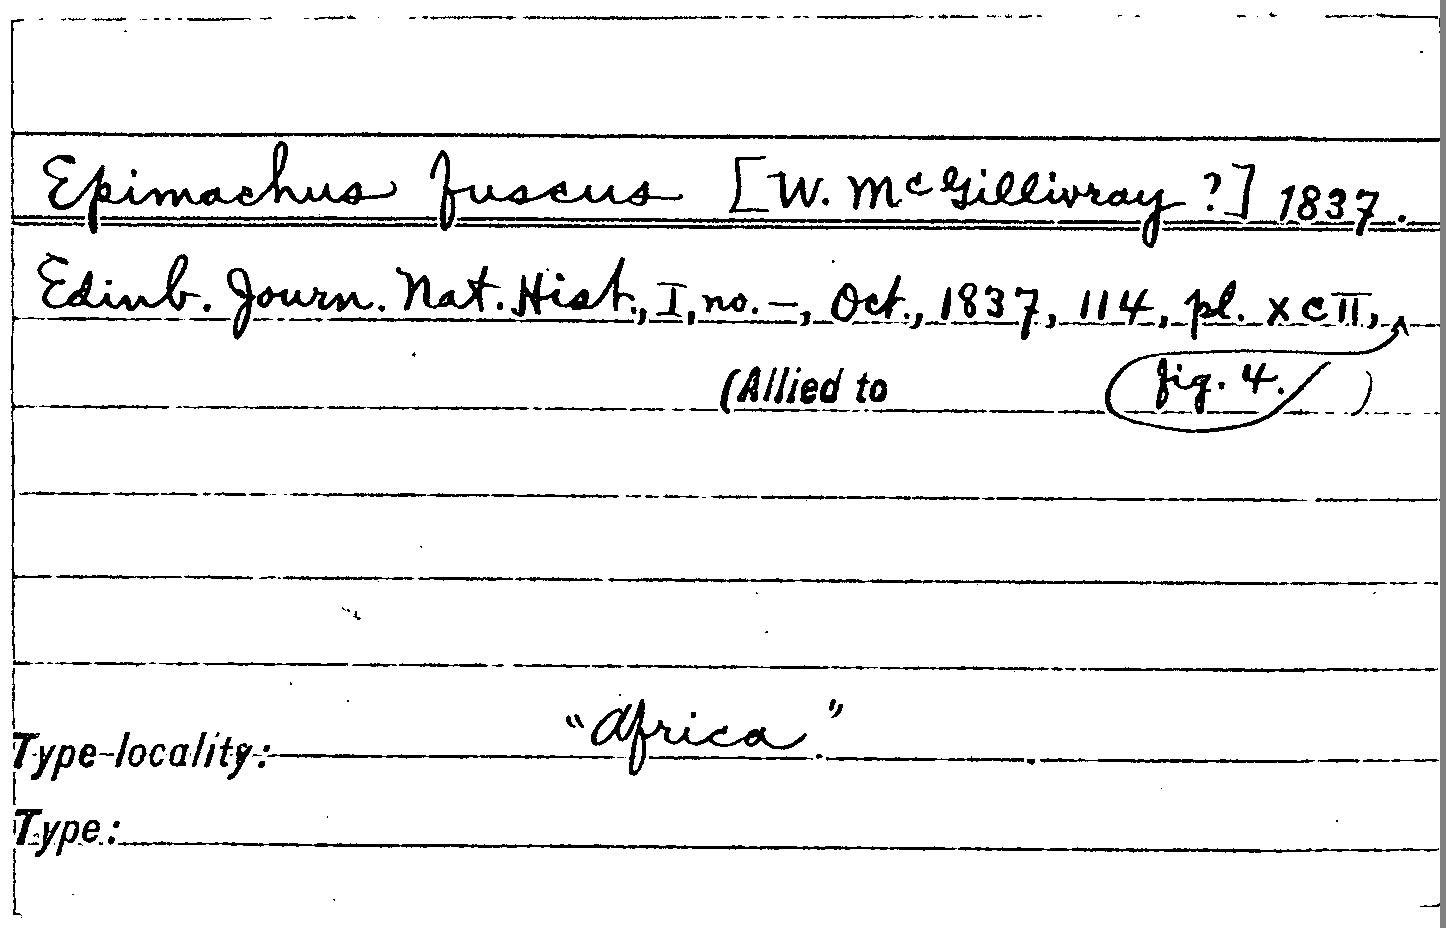 Epimachus fuscus [W. McGillivray ?] 1837.
Edinb. Journ. Nat. Hist., I, no. –, Oct., 1837, 114, pl. xcII,
(Allied to fig. 4. )
Type-locality: "Africa".
Type: